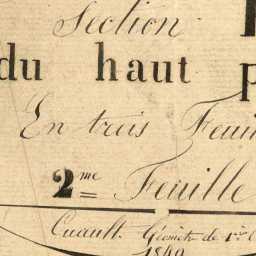 Section
du haut p
En trois Feui
2me Feuille
Cuault Géomètre de 1re C
1840